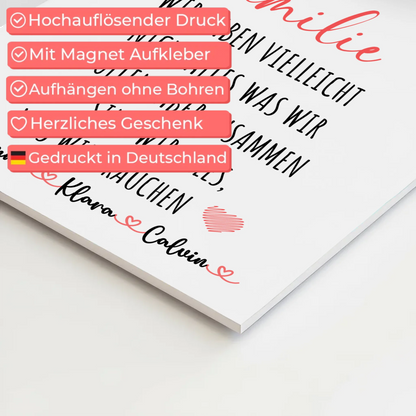 Hochauflösender Druck
Mit Magnet Aufkleber
Aufhängen ohne Bohren
Herzliches Geschenk
Gedruckt in Deutschland
milie
VIELLEICHT
WAS WIR
SAMMEN
Klara Calvin